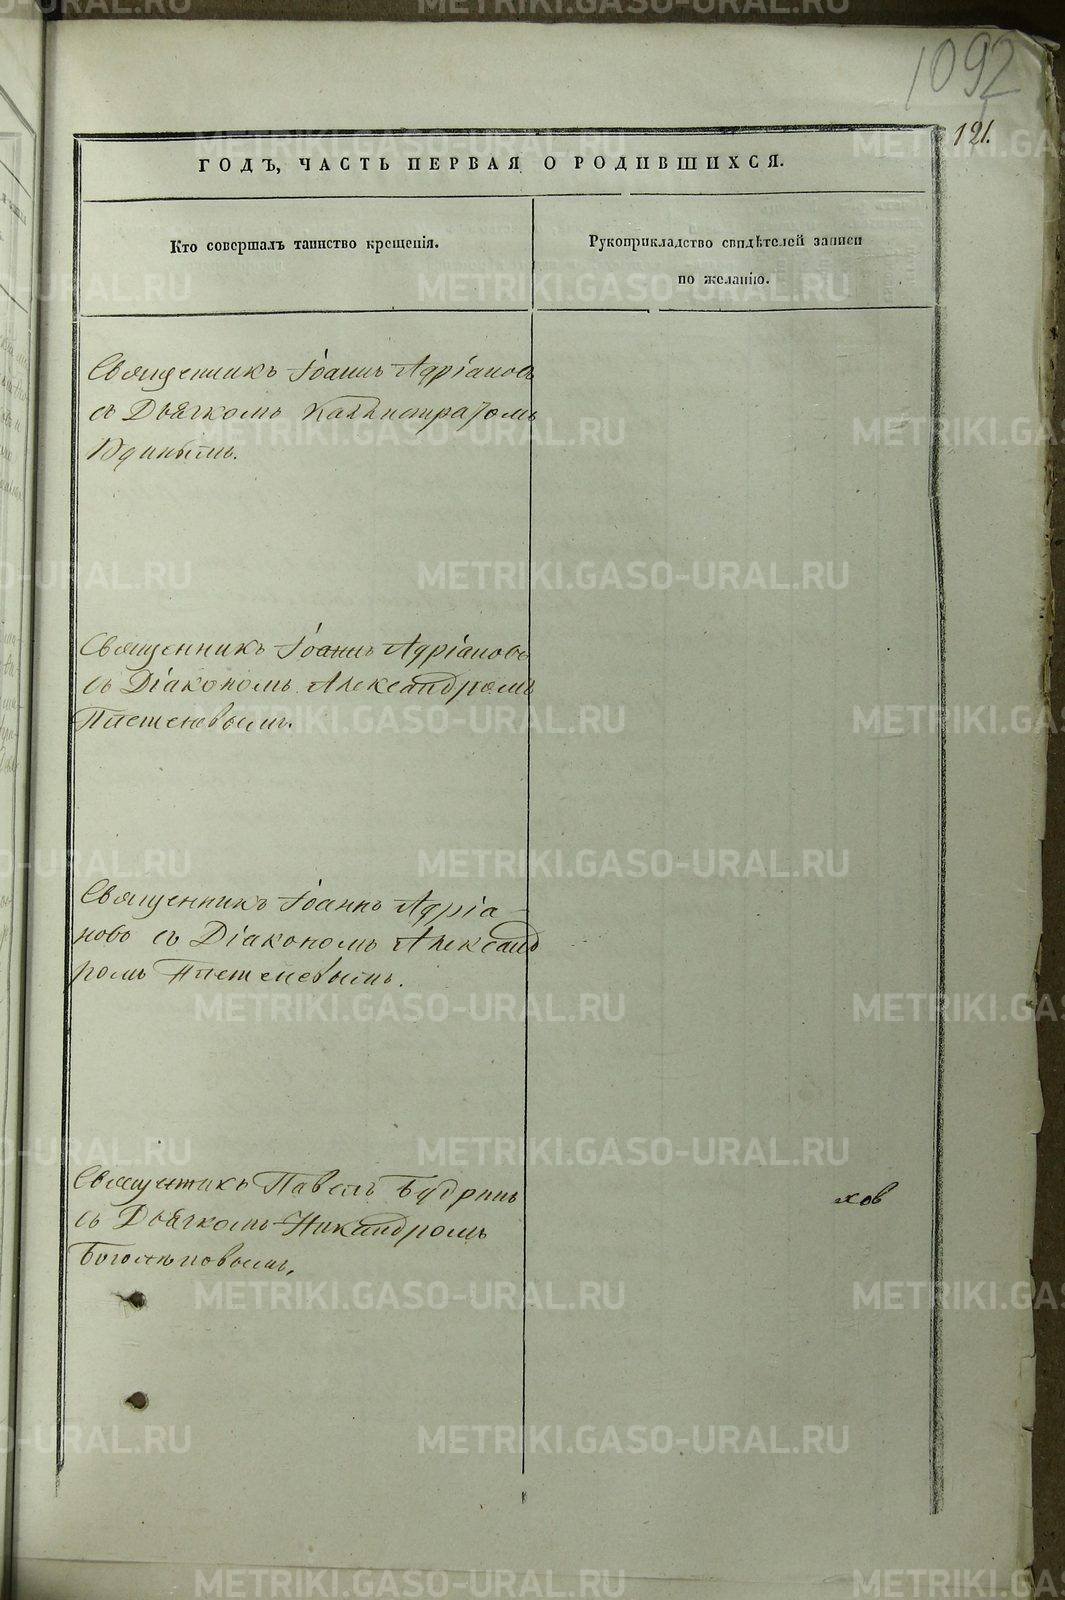 1092
121.
ГОДЪ, ЧАСТЬ ПЕРВАЯ О РОДИВШИХСЯ.
Кто совершалъ таинство крещенія.
Рукоприкладство свидѣтелей записи
по желанію.
Священникъ Іоаннъ Адріановъ
съ Дьячкомъ Каллистратомъ
Удинымъ.
Священникъ Іоаннъ Адріановъ
съ Діакономъ Александромъ
Плетеневымъ.
Священникъ Іоаннъ Адріа-
новъ съ Діакономъ Александ
ромъ Плетеневымъ.
Священникъ Павелъ Будринъ
съ Дьячкомъ Никандромъ
Боголѣповымъ.
хов
METRIKI.GASO-URAL.RU